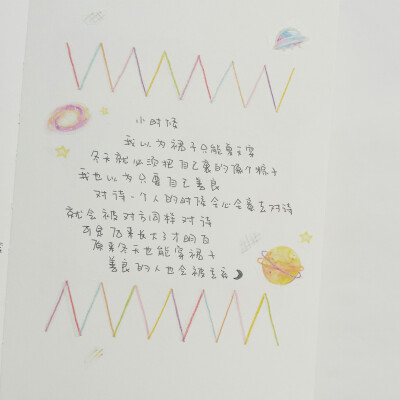 小时候
我以为裙子只能夏天穿
冬天就必须把自己裹的像个粽子
我也以为只要自己善良
对待一个人的时候全心全意去对待
就会被对方同样对待
可是后来长大了才明白
原来冬天也能穿裙子
善良的人也会被丢弃